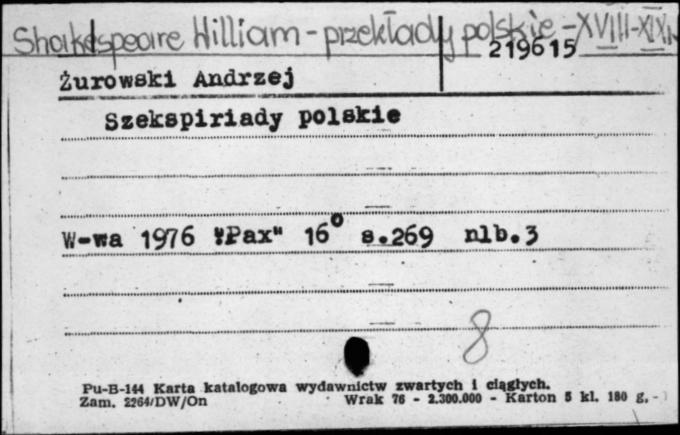 Shakespeare William - przekłady polskie - XVIII-XIX
219615
Żurowski Andrzej
Szekspiriady polskie
W-wa 1976 "Pax" 16° s.269 nlb.3
8
Pu-B-144 Karta katalogowa wydawnictw zwartych i ciągłych.
Zam. 2264/DW/On Wrak 76 - 2.300.000 - Karton 5 kl. 180 g.